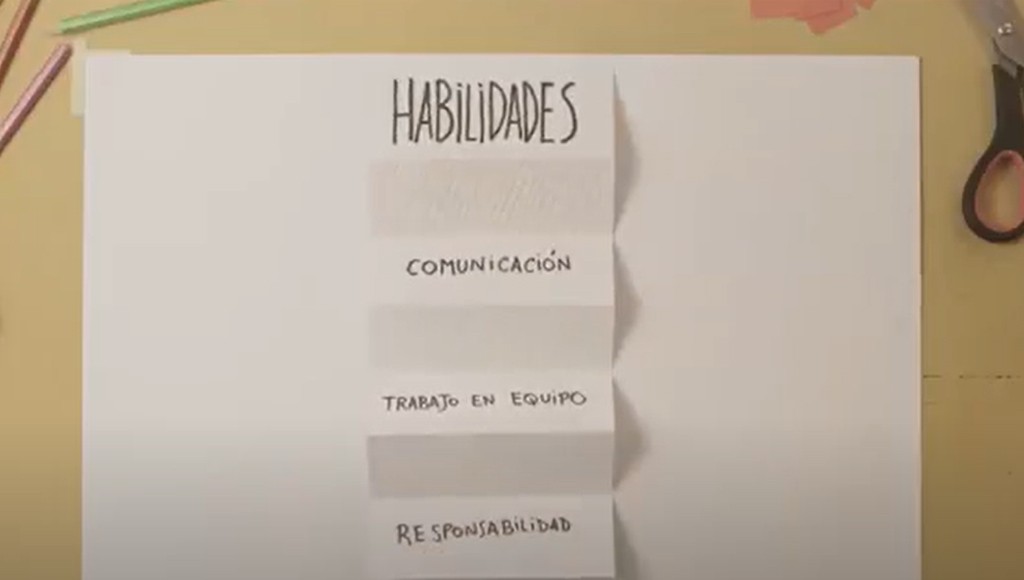 HABILIDADES
COMUNICACIÓN
TRABAJO EN EQUIPO
RESPONSABILIDAD